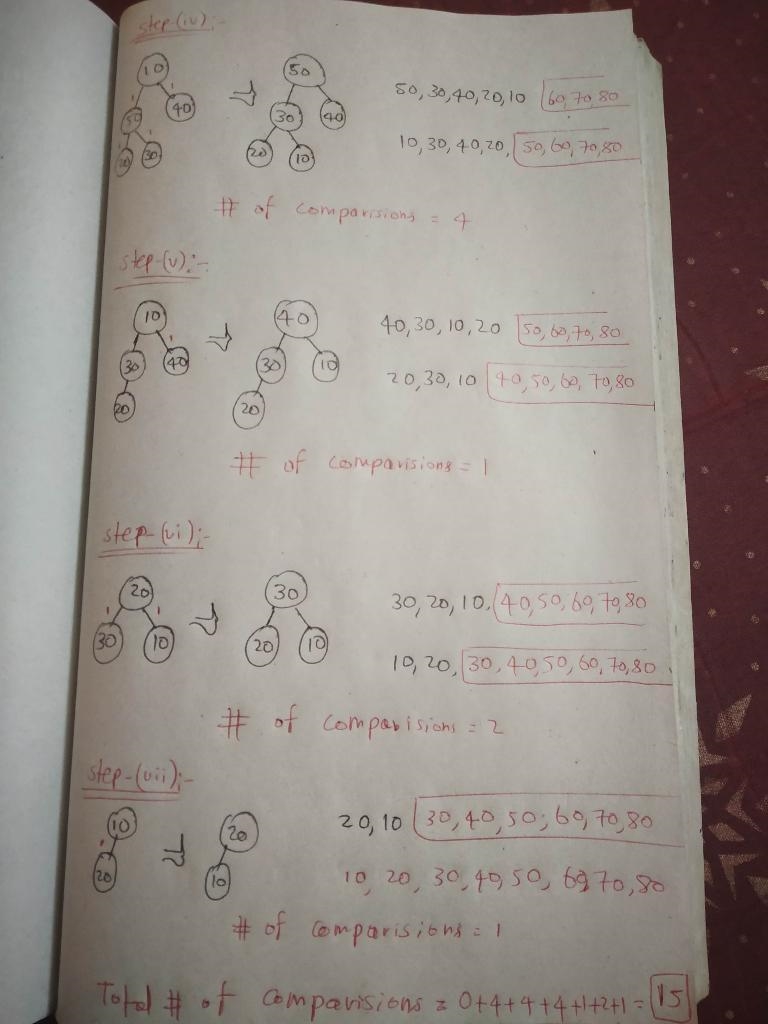 step-(iv):-
10 50
50 40 30 40
20 30 20 10
50, 30, 40, 20, 10 60, 70, 80
10, 30, 40, 20, 50, 60, 70, 80
# of comparisions = 4
step-(v):-
10 40
30 40 30 10
20 20
40, 30, 10, 20 50, 60, 70, 80
20, 30, 10 40, 50, 60, 70, 80
# of comparisions = 1
step-(vi):-
20 30
30 10 20 10
30, 20, 10, 40, 50, 60, 70, 80
10, 20, 30, 40, 50, 60, 70, 80
# of comparisions = 2
step-(vii):-
10 20
20 10
20, 10 30, 40, 50, 60, 70, 80
10, 20, 30, 40, 50, 60, 70, 80
# of comparisions = 1
Total # of comparisions = 0+4+4+4+1+2+1 = 15